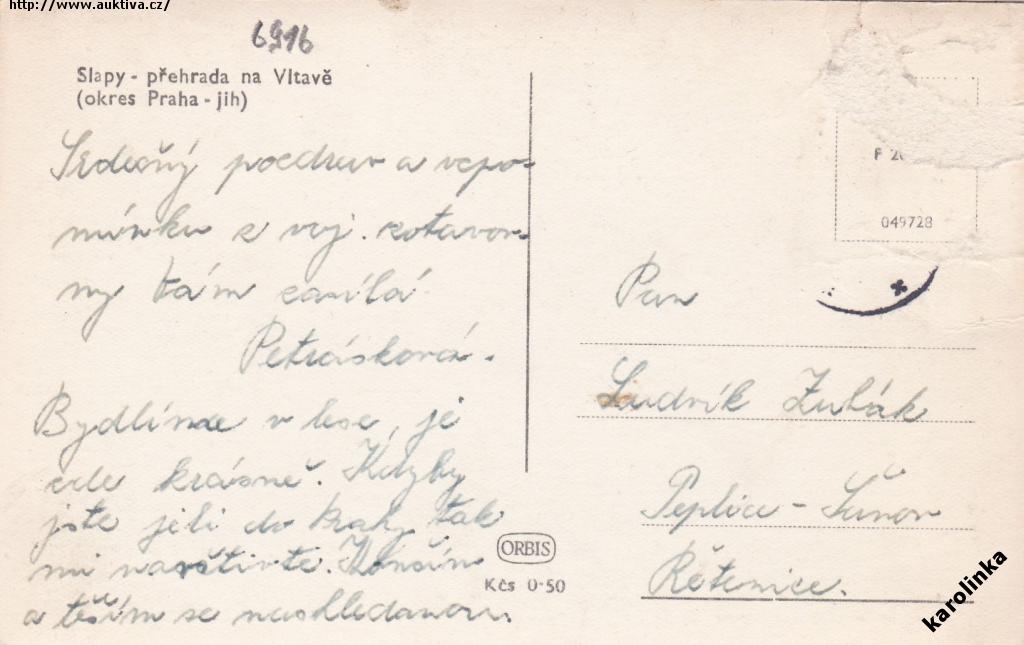 http://www.auktiva.cz/
6916
Slapy - přehrada na Vltavě
(okres Praha - jih)
Srdečný pozdrav a vzpo-
mínku z voj. zotavov-
ny Vám zasílá
Petrásková.
Bydlíme v lese, je
zde krásně. Kdyby
jste jeli do Prahy tak
mi navštivte. Končím
a těším se naskledanou.
F 20
049728
Pan
Ludvík Zubák
Teplice - Šanov
Řetenice.
ORBIS
Kčs 0·50
karolinka